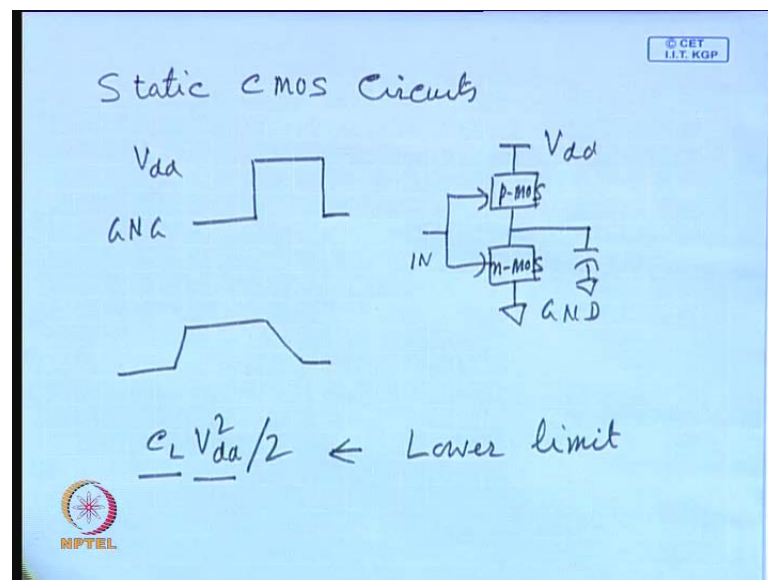 © CET
I.I.T. KGP
Static CMOS Circuits
Vdd
GND
Vdd
p-mos
IN
n-mos
GND
CL Vdd²/2 ← Lower limit
NPTEL